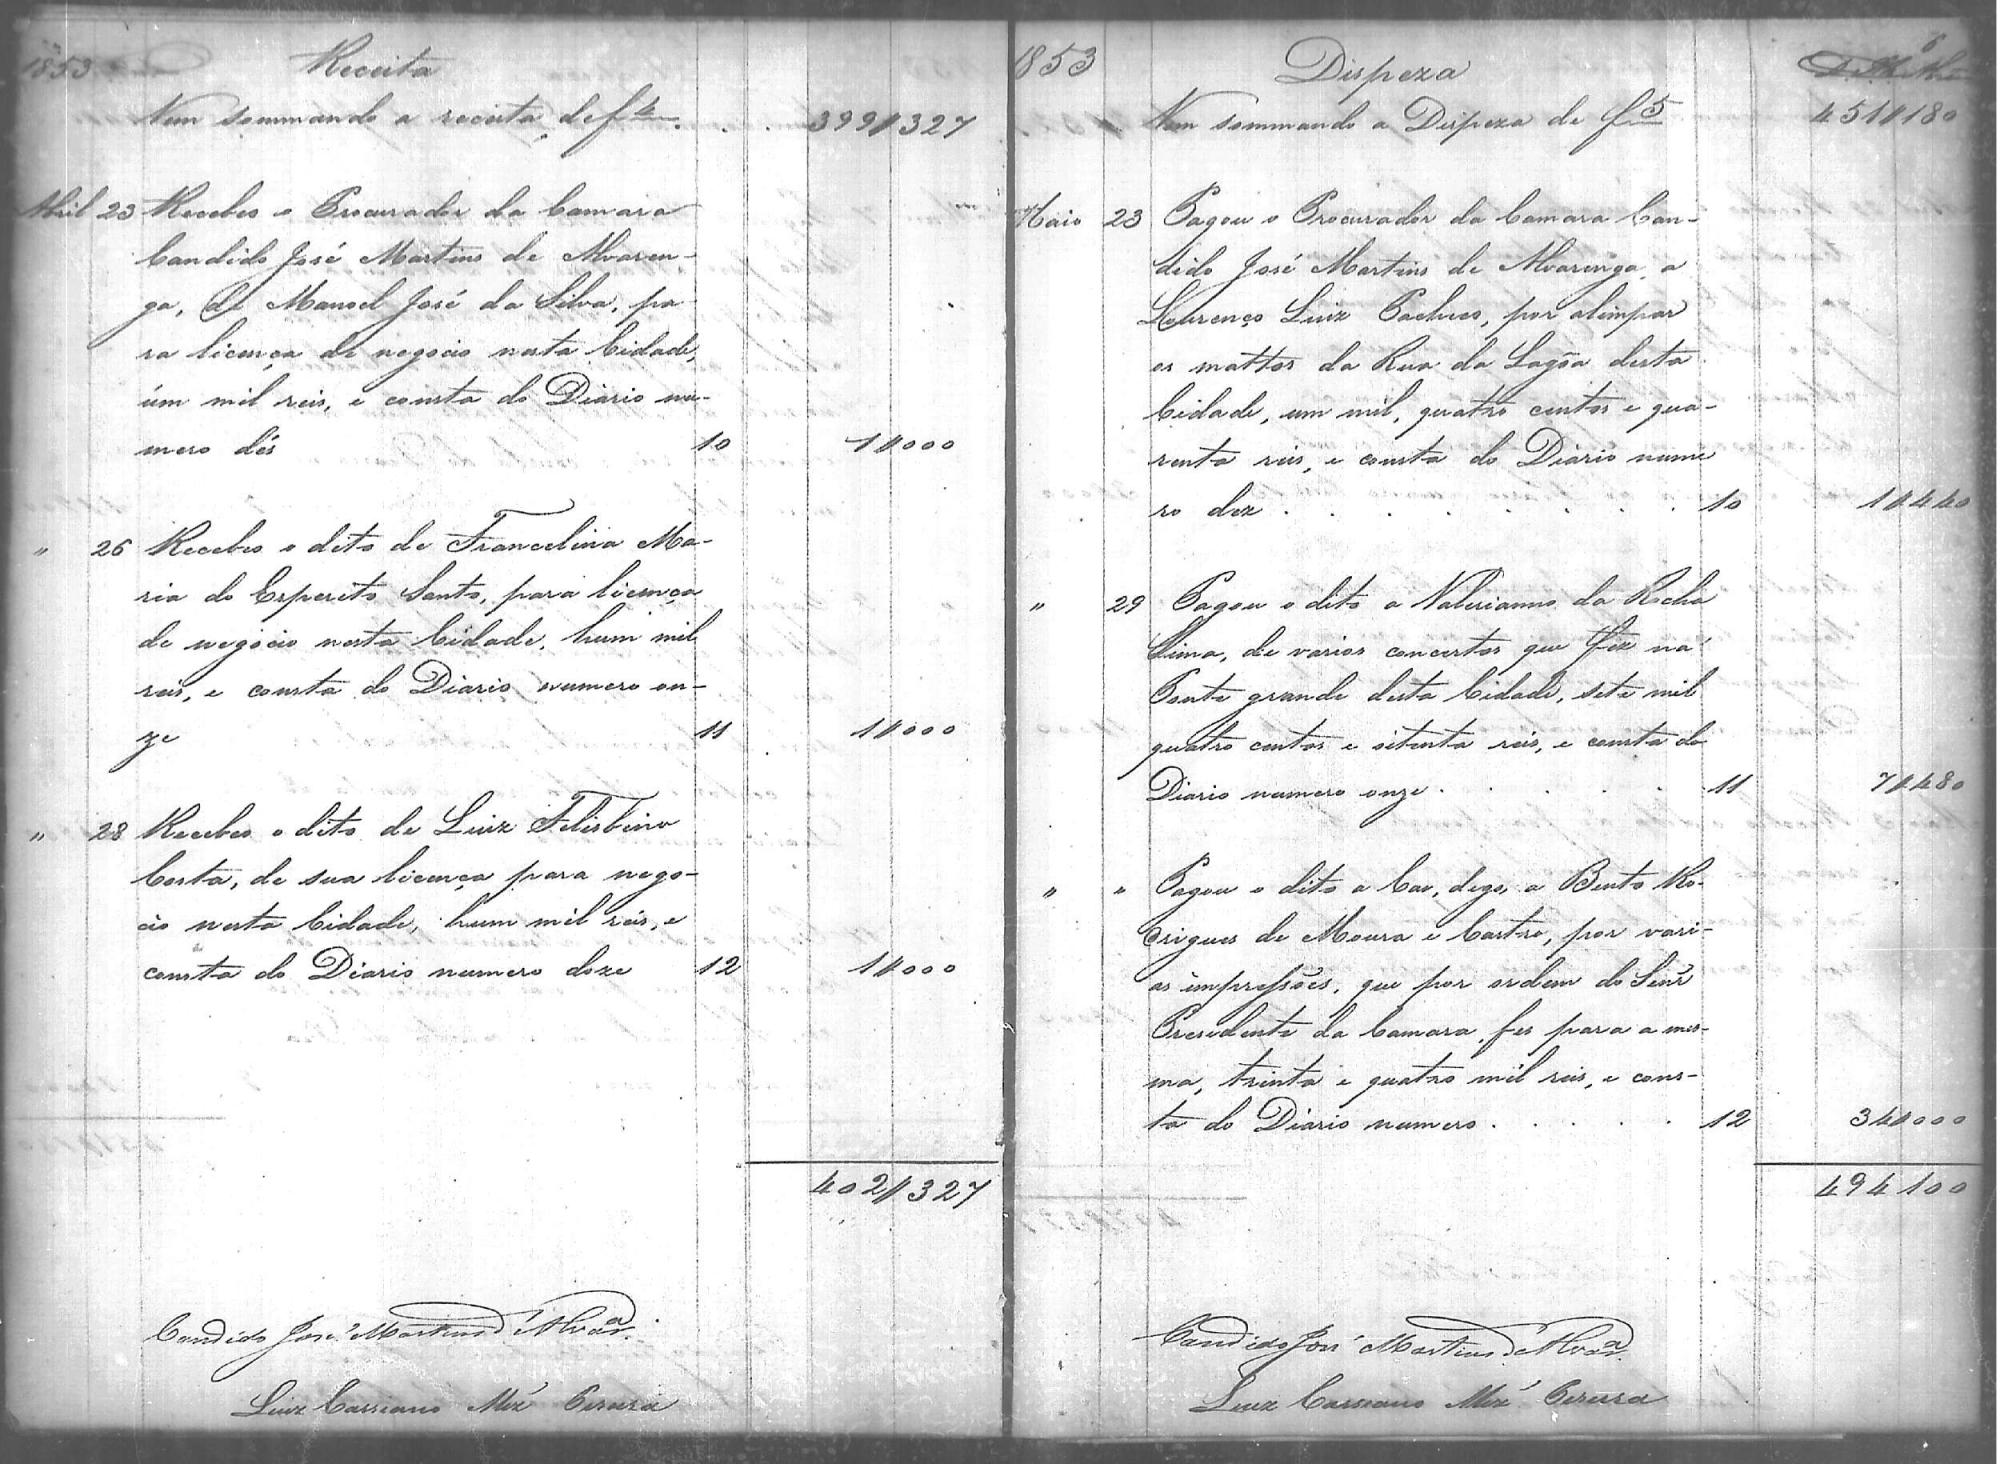 1853 Receita
Vem sommando a receita de f 4 . . . 399//327
Abril 23 Recebeo o Procurador da Camara
Candido José Martins de Alvaren-
ga, de Manoel José da Silva, pa-
ra licença de negocio nesta Cidade,
úm mil reis, e consta do Diario nu-
mero dés 10 1//000
" 26 Recebeo o dito de Francelina Ma-
ria do Esperito Santo, para licença
de negocio nesta Cidade, hum mil
reis, e consta do Diario numero on-
ze 11 1//000
" 28 Recebeo o dito de Luiz Felisbino
Costa, de sua licença para nego-
cio nesta Cidade, hum mil reis, e
consta do Diario numero doze 12 1//000
402//327
Candido José Martins d'Alvaª.
Luiz Cassiano Mez Pereira
6
1853 Dispeza
Vem sommando a Dispeza de f 5 451//180
Maio 23 Pagou o Procurador da Camara Can-
dido José Martins de Alvarenga, a
Lourenço Luiz Pacheco, por alimpar
os mattos da Rua da Lagôa desta
Cidade, um mil, quatro centos e qua-
renta reis, e consta do Diario nume
ro dez . . . . . . . 10 1//440
" 29 Pagou o dito a Valerianno da Rocha
Lima, de varios concertos que fez na
Ponte grande desta Cidade, sete mil
quatro centos e oitenta reis, e consta do
Diario numero onze . . . . . 11 7//480
" " Pagou o dito a Cav, digo, a Bento Ro-
drigues de Moura e Castro, por vari-
as impressões, que por ordem do Senr
Presidente da Camara, fes para a mes-
ma, trinta e quatro mil reis, e cons-
ta do Diario numero . . . . . 12 34//000
494100
Candido José Martins d'Alvaª.
Luiz Cassiano Mez Pereira